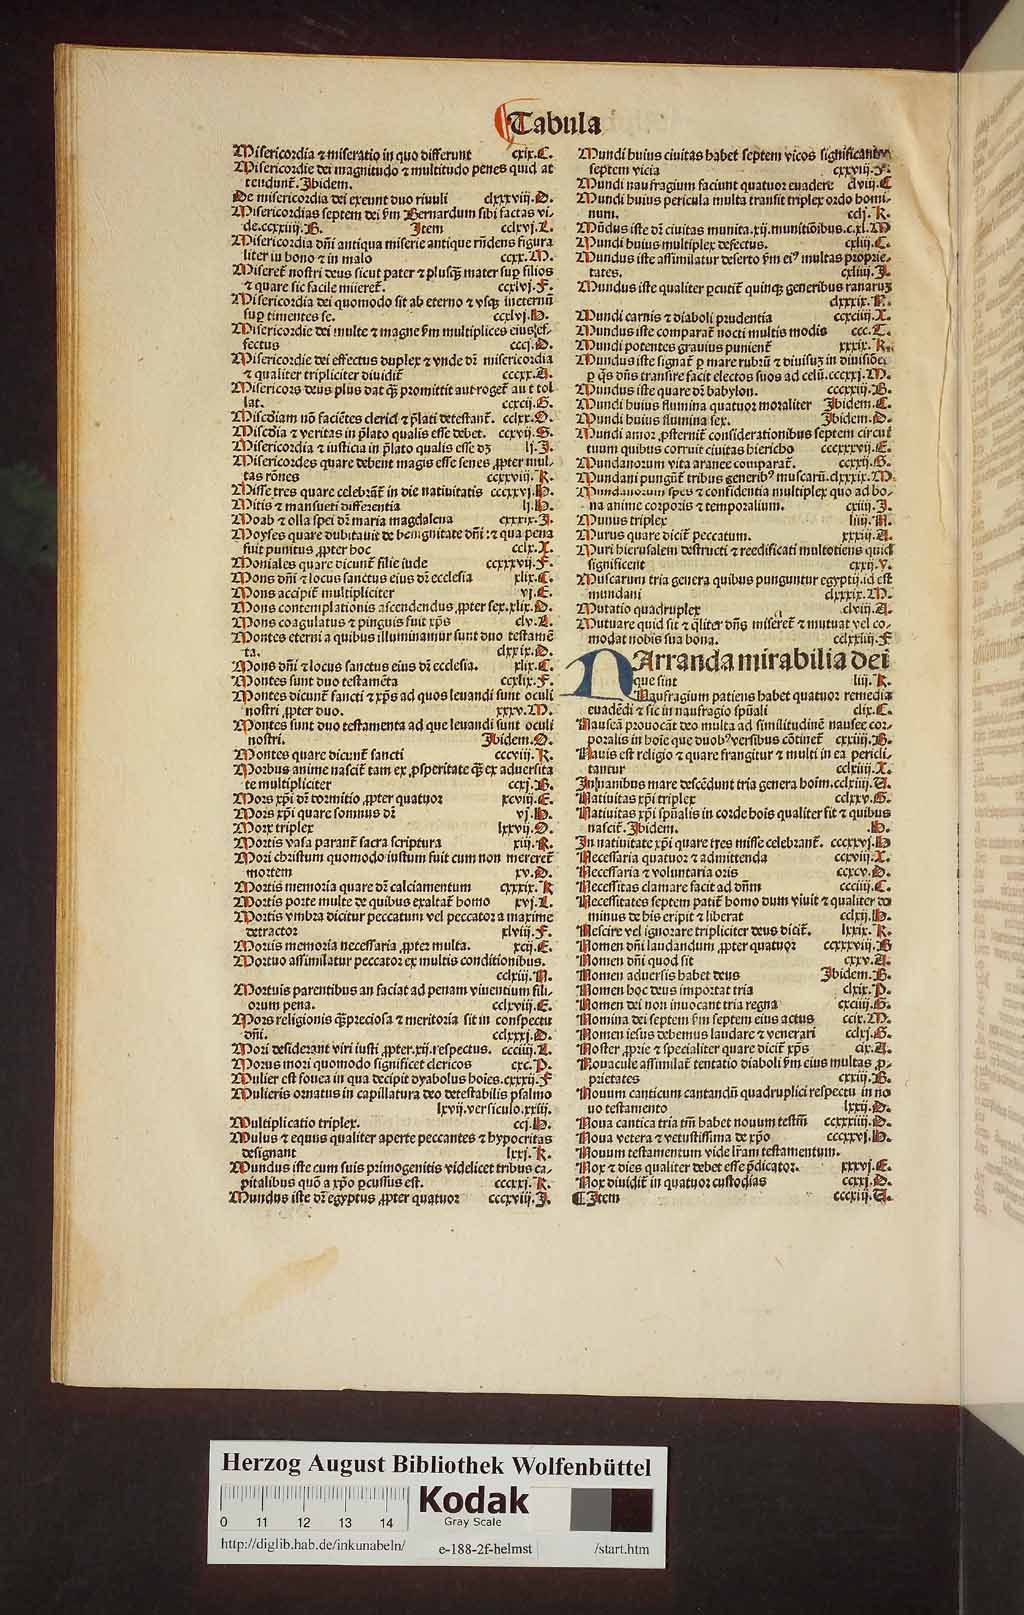 Tabula
Misericordia ⁊ miseratio in quo differunt cxix.C.
Misericordie dei magnitudo ⁊ multitudo penes quid at
tendunt̄. Ibidem.
De misericordia dei exeunt duo riuuli clxxxviij.D.
Misericordias septem dei ẜm Bernardum sibi factas vi-
de.ccxxiiij.B. Item cclxvj.L.
Misericordia dn̄i antiqua miserie antique rn̄dens figura
liter in bono ⁊ in malo ccxx.M.
Miseret̄ nostri deus sicut pater ⁊ plusq̄ȝ mater sup̱ filios
⁊ quare sic facile miseret̄. ccxlvj.F.
Misericordia dei quomodo sit ab eterno ⁊ vsq̄ȝ ineternū
sup̱ timentes se. ccxlvj.H.
Misericordie dei multe ⁊ magne ẜm multiplices eius ef-
fectus cccj.D.
Misericordie dei effectus duplex ⁊ vnde dr̄ misericordia
⁊ qualiter tripliciter diuidit̄ cccxx.A.
Misericors deus plus dat q̄ȝ promittit aut roget̄ aut tol
lat. ccxcij.G.
Miscd̄iam nō faciētes clerici ⁊ p̄lati detestant̄. cclxx.O.
Miscd̄ia ⁊ veritas in p̄lato qualis esse debet. ccxvij.S.
Misericordia ⁊ iusticia in p̄lato qualis esse dȝ lj.I.
Misericordes quare debent magis esse senes ꝓpter mul-
tas rōnes ccxxviij.K.
Misse tres quare celebrāt̄ in die natiuitatis ccccxvj.H.
Mitis ⁊ mansueti differentia lj.H.
Moab ⁊ olla spei dr̄ maria magdalena cxxxix.I.
Moyses quare dubitauit de benignitate dn̄i: ⁊ qua pena
fuit punitus ꝓpter hoc cclx.X.
Moniales quare dicunt̄ filie iude ccxxxvij.F.
Mons dn̄i ⁊ locus sanctus eius dr̄ ecclesia xlix.C.
Mons accipit̄ multipliciter vj.E.
Mons contemplationis ascendendus ꝓpter sex.xlix.D.
Mons coagulatus ⁊ pinguis fuit xp̄s clv.L.
Montes eterni a quibus illuminamur sunt duo testamē
ta. clxxix.D.
Mons dn̄i ⁊ locus sanctus eius dr̄ ecclesia. xlix.C.
Montes sunt duo testamēta ccxlix.F.
Montes dicunt̄ sancti ⁊ xp̄s ad quos leuandi sunt oculi
nostri ꝓpter duo. xxxv.M.
Montes sunt duo testamenta ad que leuandi sunt oculi
nostri. Ibidem.O.
Montes quare dicunt̄ sancti cccviij.K.
Morbus anime nascit̄ tam ex ꝓsperitate q̄ȝ ex aduersita
te multipliciter ccxj.B.
Mors xp̄i dr̄ dormitio ꝓpter quatuor xcviij.E.
Mors xp̄i quare somnus dr̄ vj.H.
Morx triplex lxxvij.O.
Mortis vasa parant̄ sacra scriptura xiij.K.
Mori christum quomodo iustum fuit cum non mereret̄
mortem xv.D.
Mortis memoria quare dr̄ calciamentum cxxxix.K
Mortis porte multe de quibus exaltat̄ homo xvj.L.
Mortis vmbra dicitur peccatum vel peccator a maxime
detractor xlviij.F.
Mortis memoria necessaria ꝓpter multa. xcij.E.
Mortuo assimilatur peccator ex multis conditionibus.
cclxiij.N.
Mortuis parentibus an faciat ad penam viuentium fili-
orum pena. cclxviij.E.
Mors religionis q̄ȝ preciosa ⁊ meritoria sit in conspectu
dn̄i. cclxxxj.D.
Mori desiderant viri iusti ꝓpter.xij.respectus. ccciiij.L.
Morus mori quomodo significet clericos cxc.P.
Mulier est fouea in qua decipit dyabolus hoīes.cxxxij.F
Mulieris ornatus in capillatura deo detestabilis psalmo
lxvij.versiculo.xxiij.
Multiplicatio triplex. ccj.H.
Mulus ⁊ equus qualiter aperte peccantes ⁊ hypocritas
designant lxxj.K.
Mundus iste cum suis primogenitis videlicet tribus ca-
pitalibus quō a xp̄o ꝑcussus est. ccccxxj.K.
Mundus iste dr̄ egyptus ꝓpter quatuor cccxviij.I.
Mundi huius ciuitas habet septem vicos
septem vicia cxxviij.F.
Mundi naufragium faciunt quatuor euadere clviij.C
Mundi huius pericula multa transit triplex ordo homi-
num. cclj.K.
Mūdus iste dr̄ ciuitas munita.xij.munitiōibus.c.xl.M
Mundi huius multiplex defectus. cxliij.C.
Mundus iste assimilatur deserto ẜm eiꝰ multas proprie-
tates. cxliiij.I.
Mundus iste qualiter ꝑcutit̄ quinq̄ȝ generibus ranarum
clxxxix.N.
Mundi carnis ⁊ diaboli prudentia ccxciiij.X.
Mundus iste comparat̄ nocti multis modis ccc.C.
Mundi potentes grauius punient̄ xxxix.K.
Mundus iste signat̄ ꝑ mare rubrū ⁊ diuisuȝ in diuisiōes
ꝑ q̄s dn̄s transire facit electos suos ad celū.ccccxxj.M.
Mundus iste quare dr̄ babylon. ccccxxiij.B.
Mundi huius flumina quatuor moraliter Ibidem.C.
Mundi huius flumina sex. Ibidem.D.
Mundi amor ꝓsternit̄ considerationibus septem circui
tuum quibus corruit ciuitas hiericho ccccxxvij.E.
Mundanorum vita aranee comparat̄. ccxxij.G.
Mundani pungūt̄ tribus generibꝰ muscarū.clxxxix.M.
Mundanorum spes ⁊ confidentia multiplex quo ad bo-
na anime corporis ⁊ temporalium. cxiiij.I.
Munus triplex liiij.N.
Murus quare dicit̄ peccatum. xxxiij.A.
Muri hierusalem destructi ⁊ reedificati multotiens quid
significent cxxij.V.
Muscarum tria genera quibus punguntur egyptij.id est
mundani clxxxix.M.
Mutatio quadruplex clviij.A.
Mutuare quid sit ⁊ q̄liter dn̄s miseret̄ ⁊ mutuat vel co-
modat nobis sua bona. cclxxiiij.F
NArranda mirabilia dei
que sint liij.K.
Naufragium patiens habet quatuor remedia
euadēdi ⁊ sic in naufragio spūali clix.C.
Nauseā prouocāt deo multa ad similitudinē nausee cor-
poralis in hoīe que duobꝰ versibus cōtinet̄ cxxiiij.B.
Nauis est religio ⁊ quare frangitur ⁊ multi in ea pericli-
tantur cclxiiij.X.
In nauibus mare descēdunt tria genera hoīm.cclxiiij.A.
Natiuitas xp̄i triplex cclxxv.G.
Natiuitas xp̄i spūalis in corde hoīs qualiter fit ⁊ quibus
nascit̄. Ibidem. .H.
In natiuitate xp̄i quare tres misse celebrant̄. ccccxvj.H
Necessaria quatuor ⁊ admittenda ccxviij.X.
Necessaria ⁊ voluntaria oris ccxcv.D.
Necessitas clamare facit ad dn̄m ccciiij.C.
Necessitates septem patit̄ homo dum viuit ⁊ qualiter do
minus de his eripit ⁊ liberat cclxij.H.
Nescire vel ignorare tripliciter deus dicit̄. lxxix.K.
Nomen dn̄i laudandum ꝓpter quatuor ccxxxviij.B
Nomen dn̄i quod sit cxxv.A.
Nomen aduersis habet deus Ibidem.B.
Nomen hoc deus importat tria clxix.P.
Nomen dei non inuocant tria regna xcciiij.G.
Nomina dei septem ẜm septem eius actus ccix.M.
Nomen iesus debemus laudare ⁊ venerari cclxj.G.
Noster ꝓprie ⁊ specialiter quare dicit̄ xp̄s cix.A.
Nouacule assimilat̄ tentatio diaboli ẜm eius multas ꝓ-
prietates cxxiij.B.
Nouum canticum cantandū quadruplici respectu in no
uo testamento lxxij.D.
Noua cantica tria tm̄ habet nouum testm̄ ccxxxiiij.D.
Noua vetera ⁊ vetustissima de xp̄o cccxxvj.H.
Nouum testamentum vide lr̄am testamentum.
Nox ⁊ dies qualiter debet esse p̄dicator. xxxvj.E.
Nox diuidit̄ in quatuor custodias ccxxj.D.
Item cccxiij.A.
Herzog August Bibliothek Wolfenbüttel
0 11 12 13 14
Kodak
Gray Scale
http://diglib.hab.de/inkunabeln/ e-188-2f-helmst /start.htm